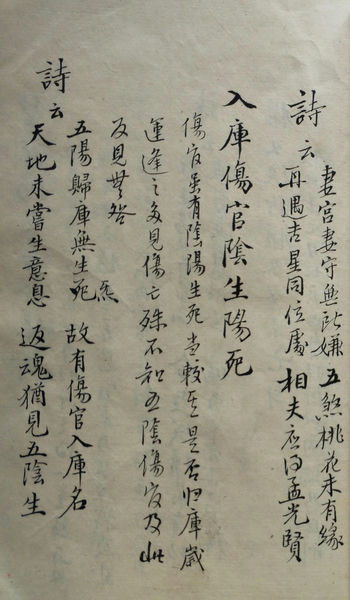 詩云
妻宮妻守無所嫌 五煞桃花未有緣
再遇吉星同位處 相夫應得孟光賢
入庫傷官陰生陽死
傷官要有陰陽生死當較其是否归庫歲
運逢之多見傷亡殊不知五陰傷官及此
反見無咎
五陽歸庫無生炁 故有傷官入庫名
死
詩云
天地未嘗生意息 返魂猶見五陰生